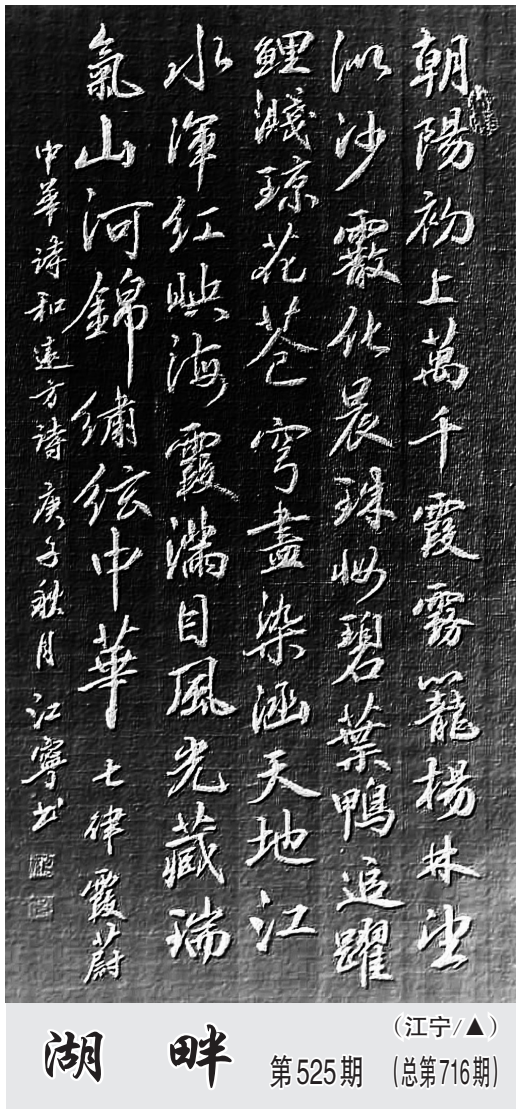 朝陽初上萬千霞霧籠楊林望
似沙霰化晨珠妝碧葉鴨追躍
鯉濺琼花蒼穹盡染涵天地江
水渾紅映海霞滿目風光藏瑞
氣山河錦繡絃中華 七律 霞蔚
中華詩和遠方詩 庚子秋月 江寧书
湖 畔 第525期 (江宁/▲)
(总第716期)